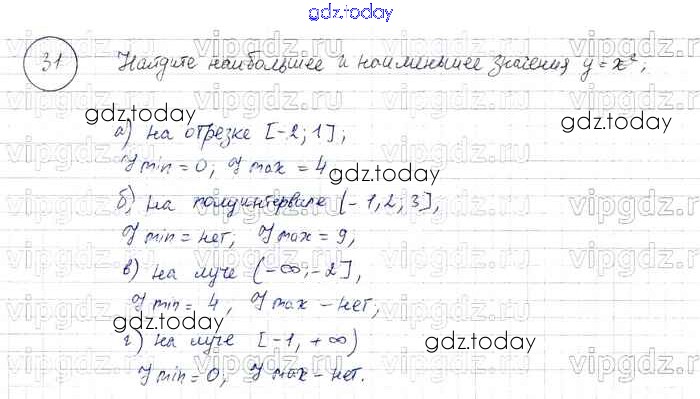 gdz.today
31 Найдите наибольшее и наименьшее значения y=x²;
gdz.today
а) на отрезке [-2; 1];
y min = 0; y max = 4
gdz.today
б) на полуинтервале (-1,2; 3],
y min = нет; y max = 9;
в) на луче (-∞; -2],
y min = 4, y max - нет;
gdz.today
г) на луче [-1, +∞)
gdz.today
y min = 0, y max - нет.
vipgdz.ru